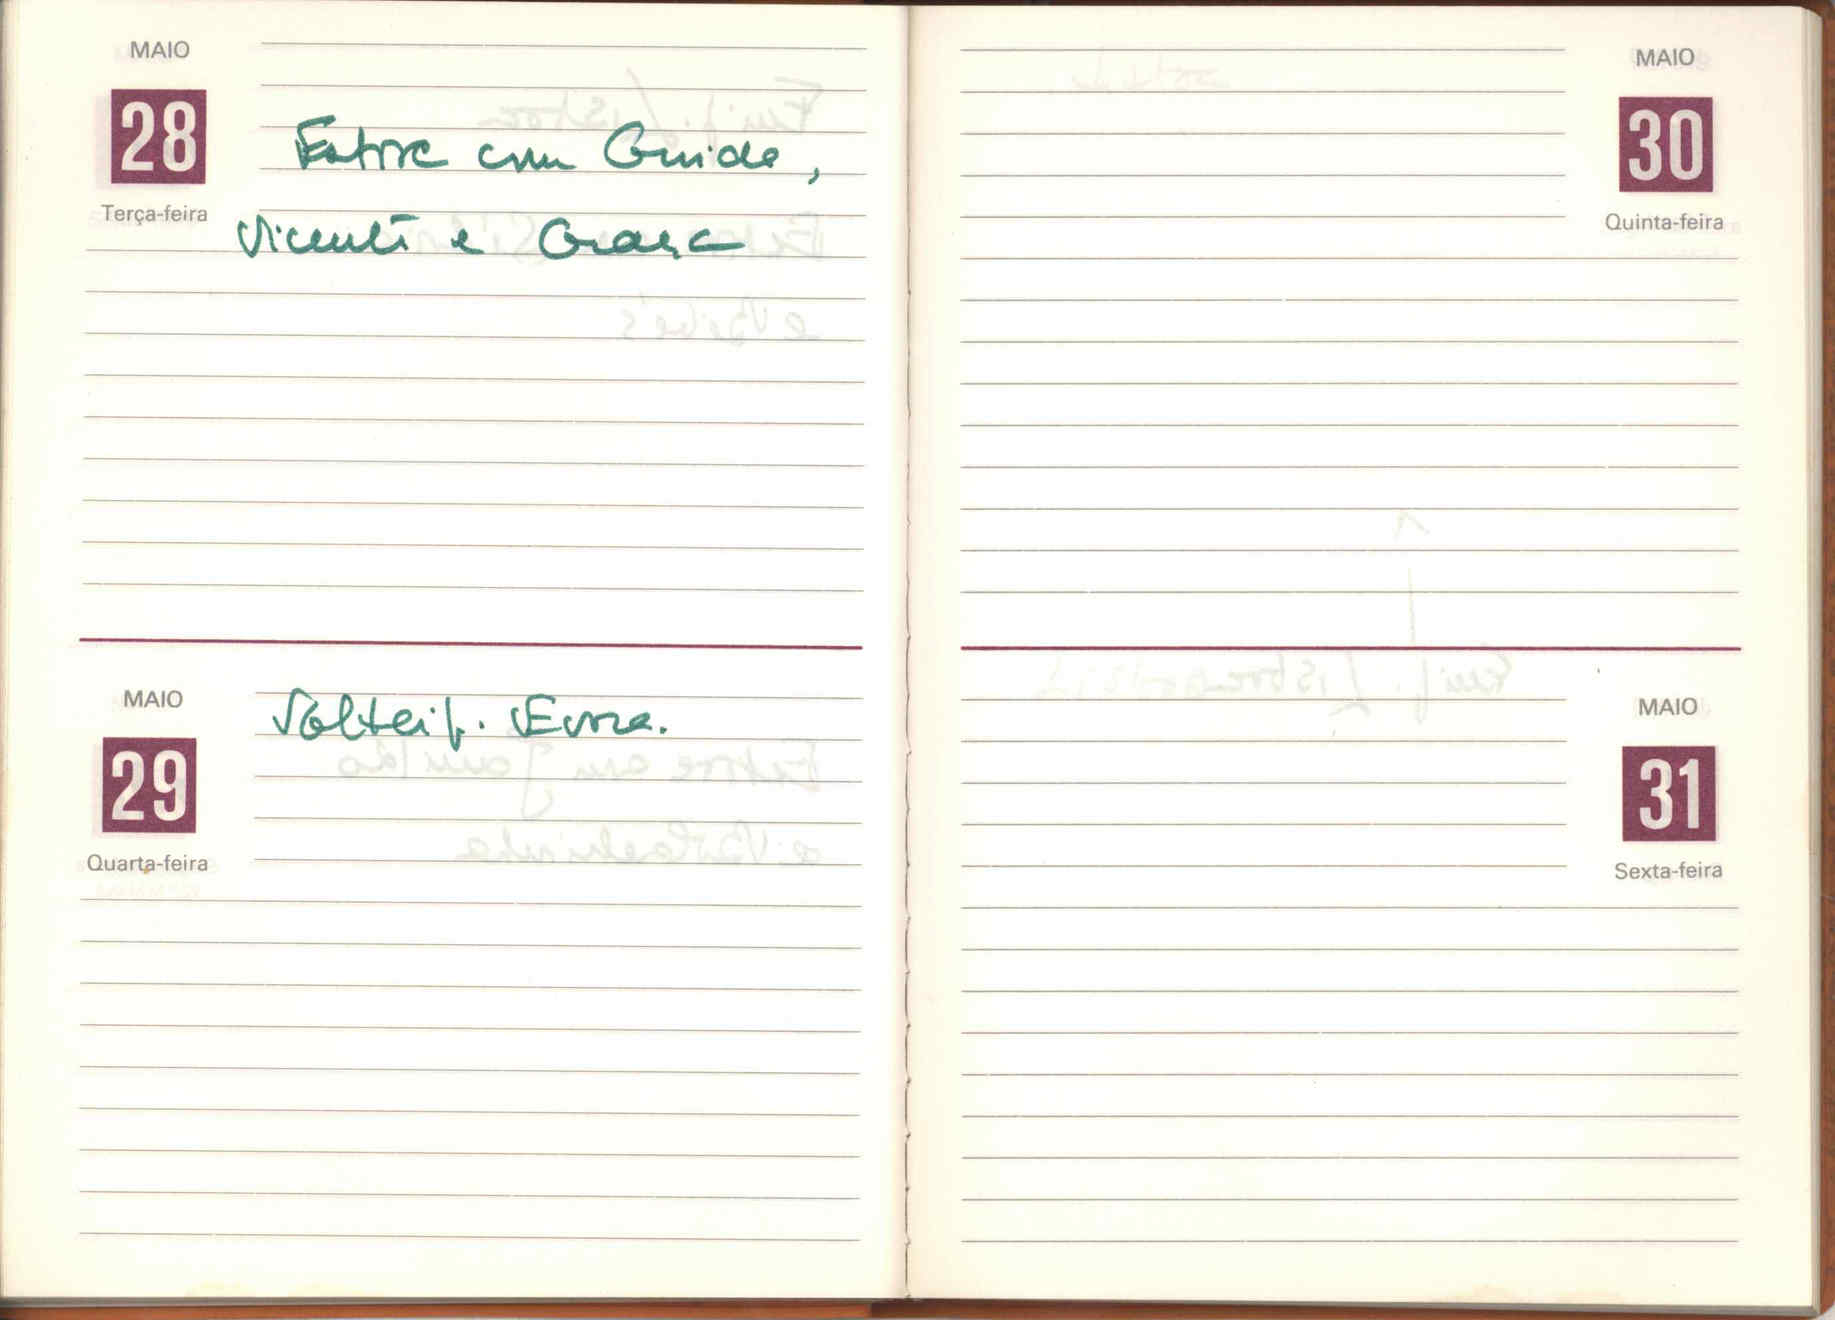 MAIO
28
Terça-feira
Estive com Guida,
Vicente e Graça
MAIO
29
Quarta-feira
Voltei p. Evora.
MAIO
30
Quinta-feira
MAIO
31
Sexta-feira